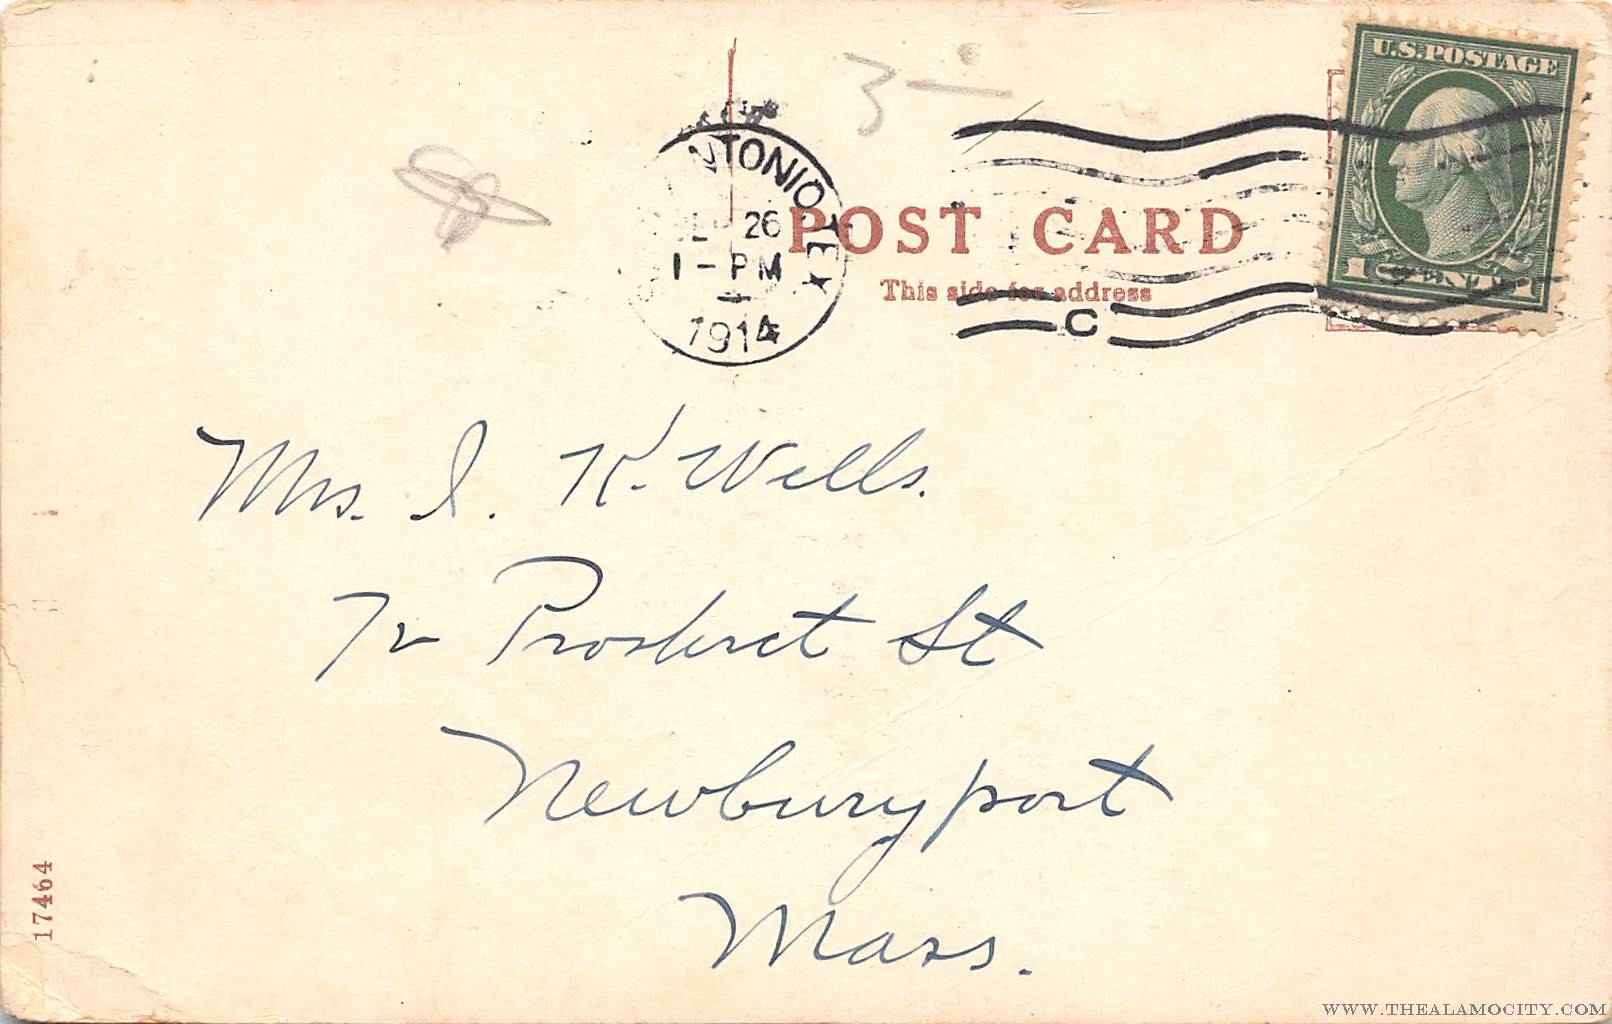 3-
U.S. POSTAGE
NTONIO TEX
26
1-PM
1914
POST CARD
This side for address
1 CENT 1
C
Mrs. I. K. Wells.
72 Prospect St
Newburyport
Mass.
17464
WWW.THEALAMOCITY.COM